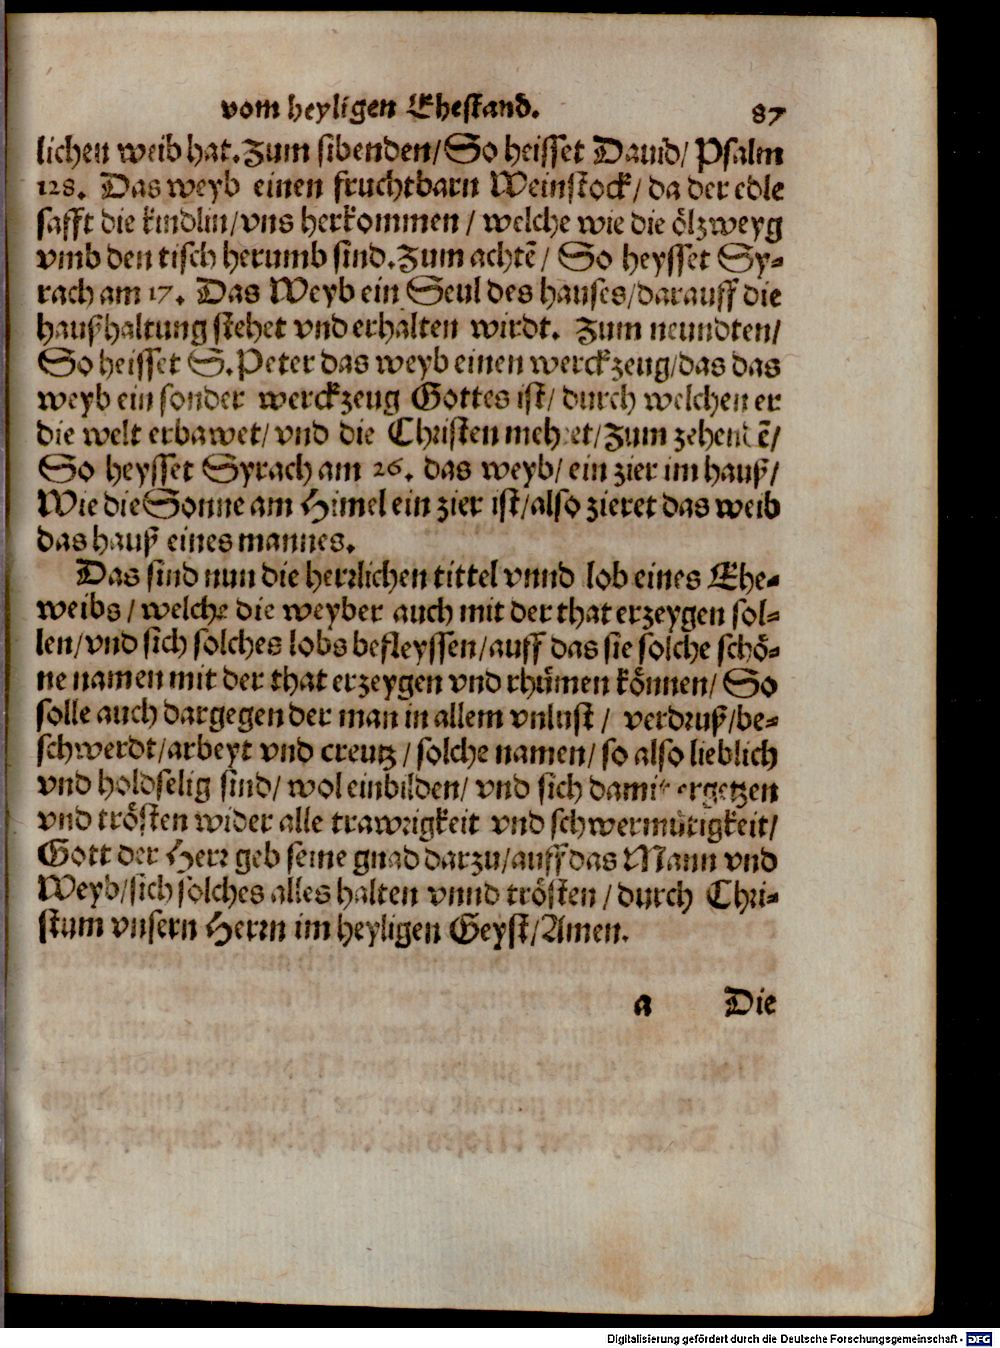 vom heyligen Ehestand. 87
lichen weib hat. Zum sibenden/ So heisset Dauid/ Psalm
128. Das weyb einen fruchtbarn Weinstock/ da der edle
safft die kindlin/ vns herkommen / welche wie die ölzweyg
vmb den tisch herumb sind. Zum achtẽ / So heysset Sy-
rach am 17. Das Weyb ein Seul des hauses/ darauff die
haußhaltung stehet vnd erhalten wirdt. Zum neundten/
So heisset S. Peter das weyb einen werckzeug/ das das
weyb ein sonder werckzeug Gottes ist/ durch welchen er
die welt erbawet/ vnd die Christen mehret/ Zum zehendẽ/
So heysset Syrach am 26. das weyb/ ein zier im hauß/
Wie die Sonne am Himel ein zier ist/ also zieret das weib
das hauß eines mannes.
Das sind nun die herrlichen tittel vnnd lob eines Ehe-
weibs / welche die weyber auch mit der that erzeygen sol-
len/ vnd sich solches lobs befleyssen/ auff das sie solche schö-
ne namen mit der that erzeygen vnd rhümen können/ So
solle auch dargegen der man in allem vnlust / verdruß/ be-
schwerdt/ arbeyt vnd creutz / solche namen/ so also lieblich
vnd holdselig sind/ wol einbilden/ vnd sich damit ergetzen
vnd trösten wider alle trawrigkeit vnd schwermütigkeit/
Gott der Herr geb seine gnad darzu/ auff das Mann vnd
Weyb/ sich solches alles halten vnnd trösten / durch Chri-
stum vnsern Herrn im heyligen Geyst/ Amen.
a Die
Digitalisierung gefördert durch die Deutsche Forschungsgemeinschaft - DFG